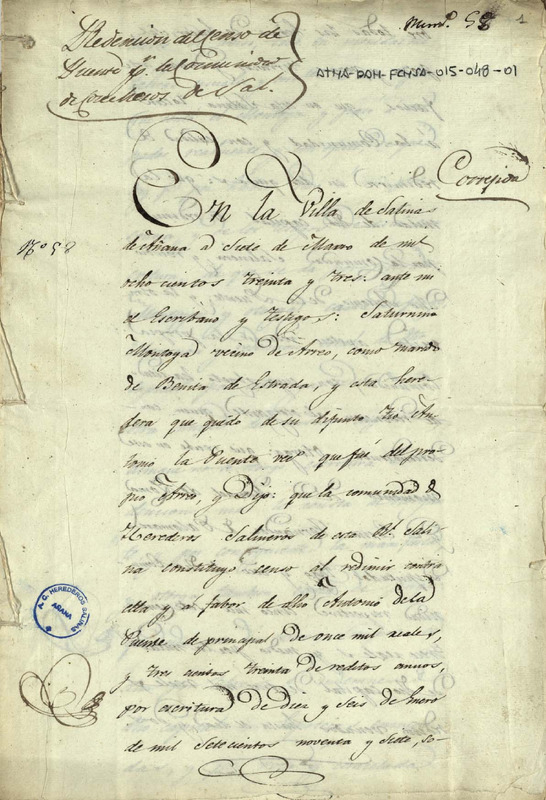 Redencion del Censo de
Puente pr. la Comunidad
de Herederos de Sal.
Numo. 58
1
ATHA-DAH-FCHSA-015-048-01
Corregida
No 58
En la Villa de Salinas
de Añana a Siete de Marzo de mil
ocho cientos treinta y tres: ante mi
el Escribano y testigos: Saturnino
Montoya vecino de Arreo, como marido
de Benita de Estrada, y esta here-
dera que quedo de su difunto tio An-
tonio la Puente veco. que fué del pro-
pio Arreo, y Dijo: que la comunidad de
Herederos Salineros de esta Rl. Sali-
na constituyó censo al redimir contra
ella y á fabor de dho Antonio de la
Puente de principal de once mil reales,
y tres cientos treinta de reditos anuos,
por escritura de diez y seis de Enero
de mil sete cientos noventa y siete, so-
A. C. HEREDEROS SALINAS
AÑANA